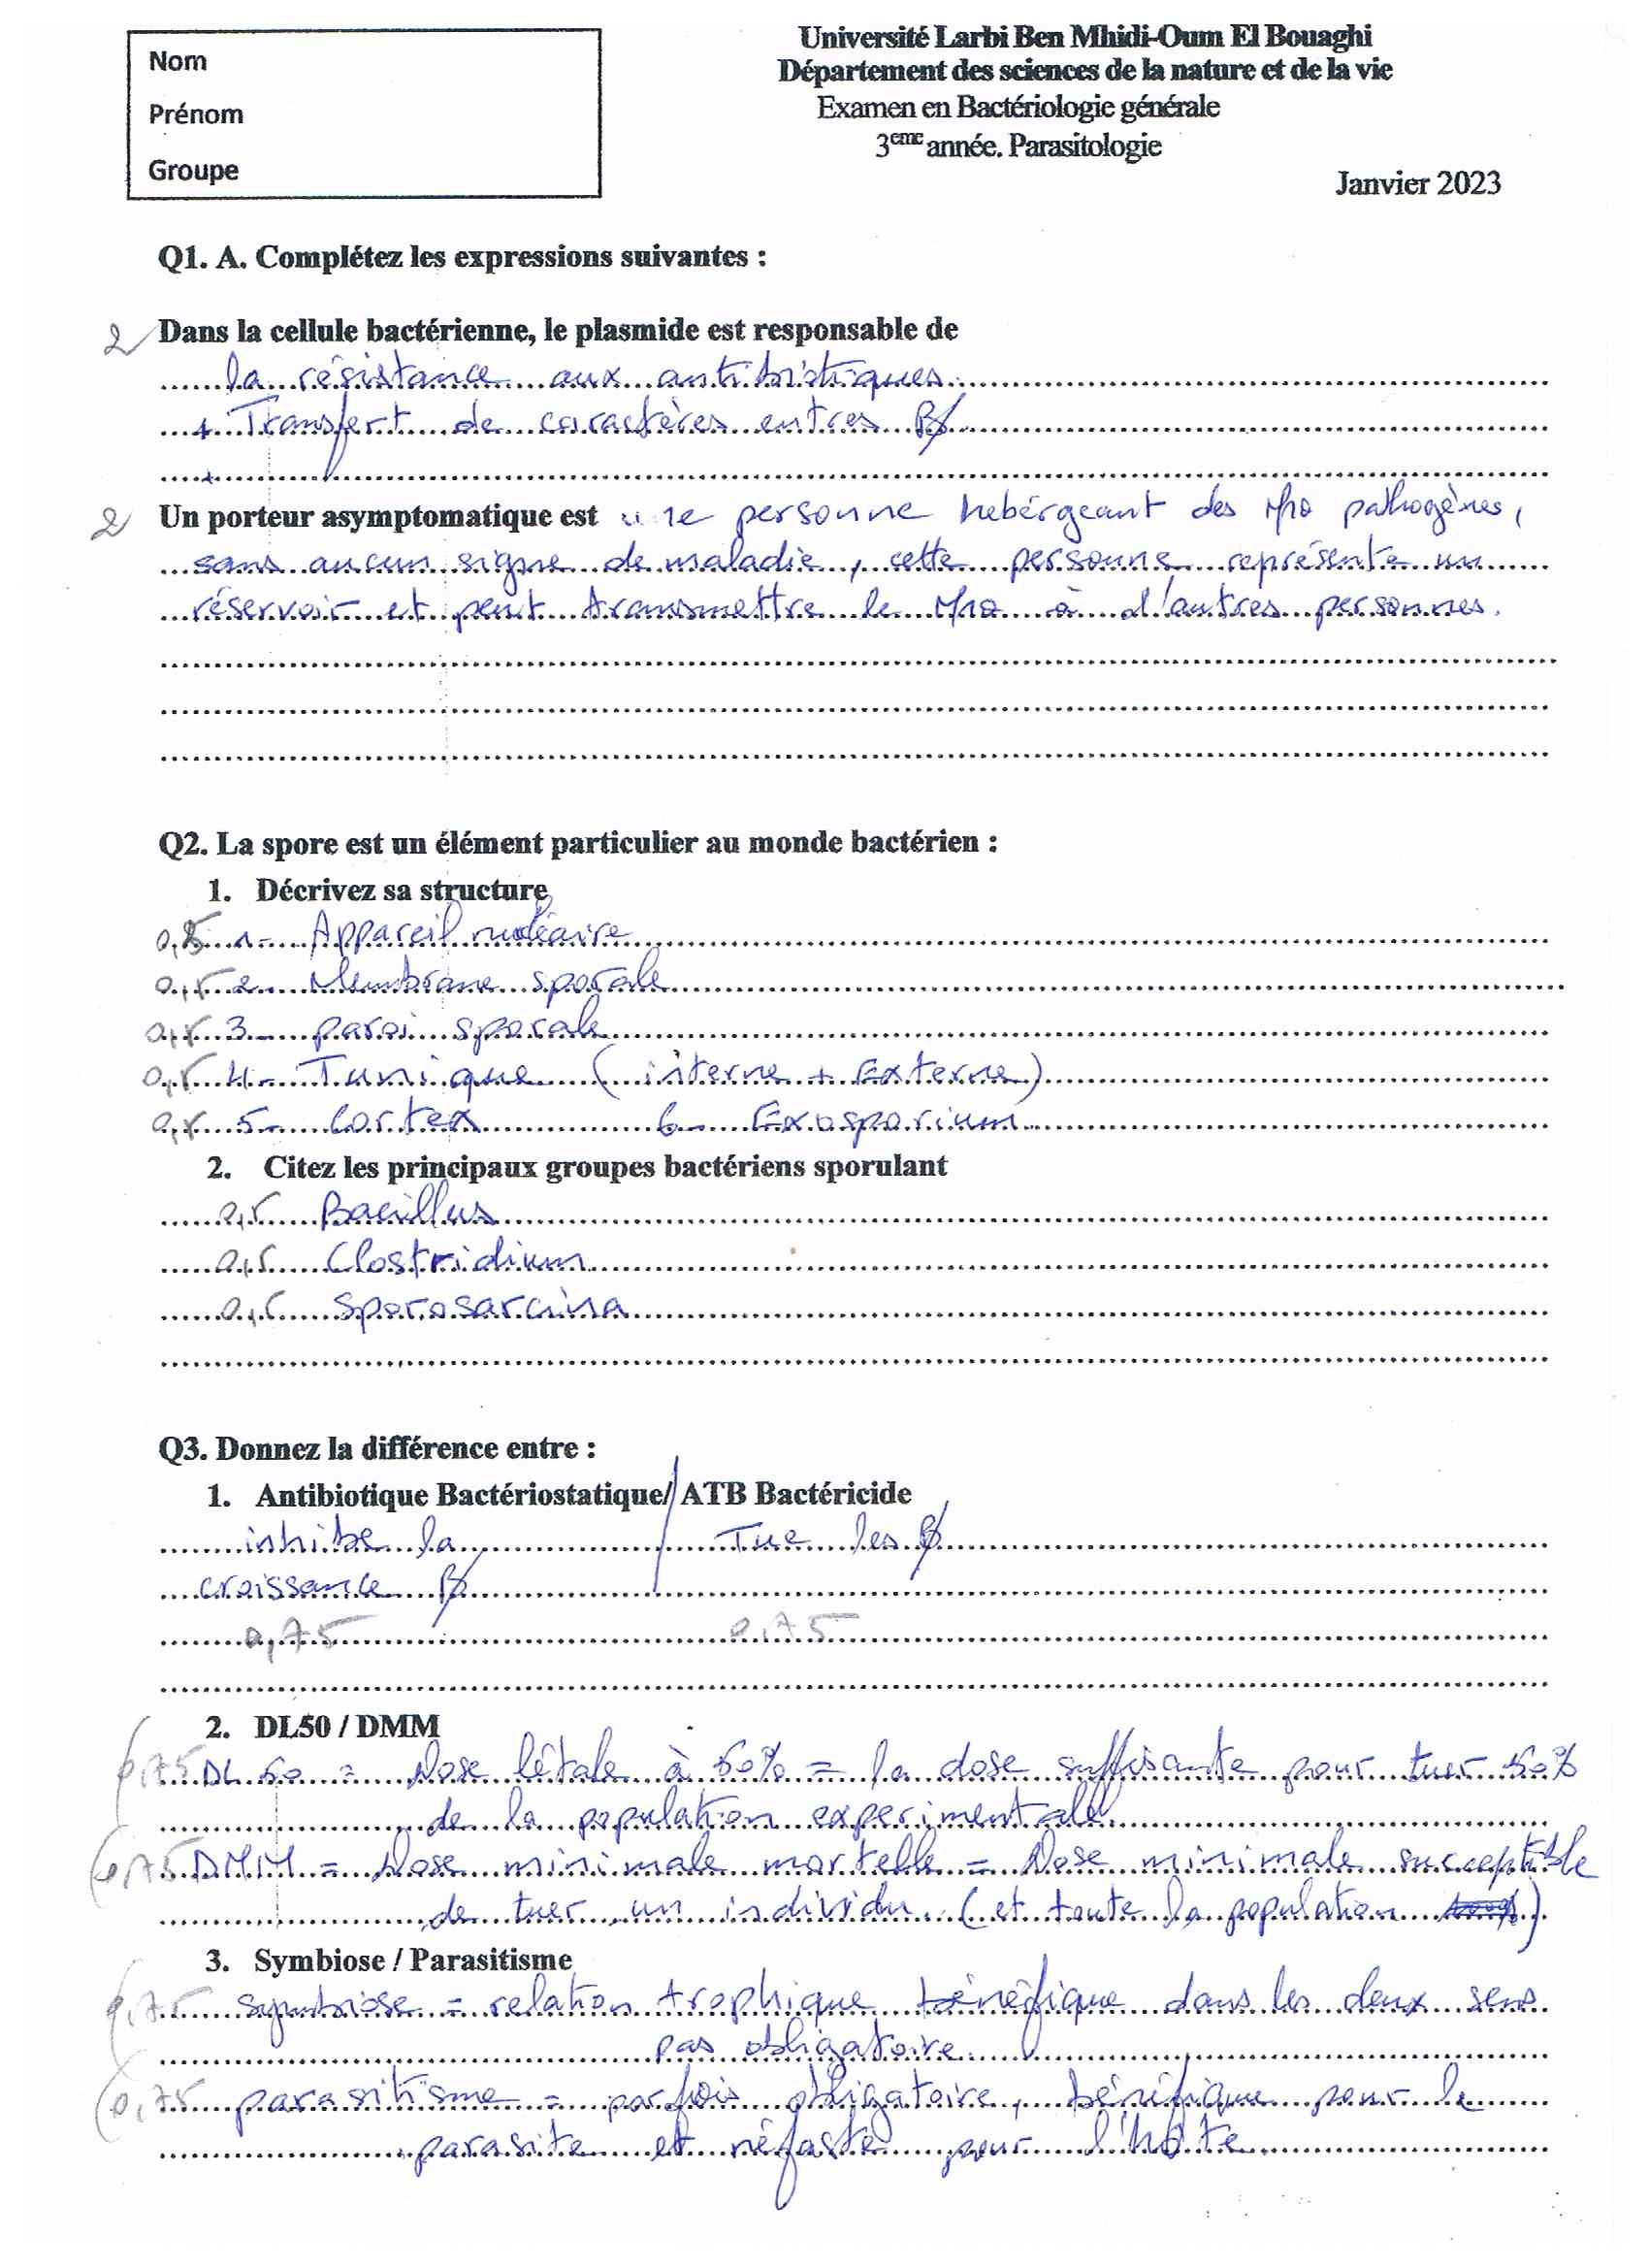 Nom
Prénom
Groupe
Université Larbi Ben Mhidi-Oum El Bouaghi
Département des sciences de la nature et de la vie
Examen en Bactériologie générale
3eme année. Parasitologie
Janvier 2023
Q1. A. Complétez les expressions suivantes :
2 Dans la cellule bactérienne, le plasmide est responsable de
la résistance aux antibiotiques
+ Transfert de caractères entres B
+
2 Un porteur asymptomatique est une personne hebérgeant des Mo pathogènes,
sans aucun signe de maladie, cette personne représente un
réservoir et peut transmettre le Mo à d'autres personnes.
Q2. La spore est un élément particulier au monde bactérien :
1. Décrivez sa structure
0,5 1- Appareil nucléaire
0,5 2- Membrane sporale
0,5 3- paroi sporale
0,5 4- Tunique (interne + Externe)
0,5 5- Cortex 6- Exosporium
2. Citez les principaux groupes bactériens sporulant
0,5 Bacillus
0,5 Clostridium
0,5 Sporosarcina
Q3. Donnez la différence entre :
1. Antibiotique Bactériostatique/ ATB Bactéricide
inhibe la / Tue les B
croissance B
0,75 0,75
2. DL50 / DMM
0,75 DL 50 = Dose létale à 50% = la dose suffisante pour tuer 50%
de la population experimentale.
0,75 DMM = Dose minimale mortelle = Dose minimale succeptible
de tuer un individu. (et toute la population )
3. Symbiose / Parasitisme
0,75 symbiose = relation trophique bénéfique dans les deux sens
pas obligatoire.
0,75 parasitisme = parfois obligatoire, bénéfique pour le
parasite et néfaste pour l'hôte.